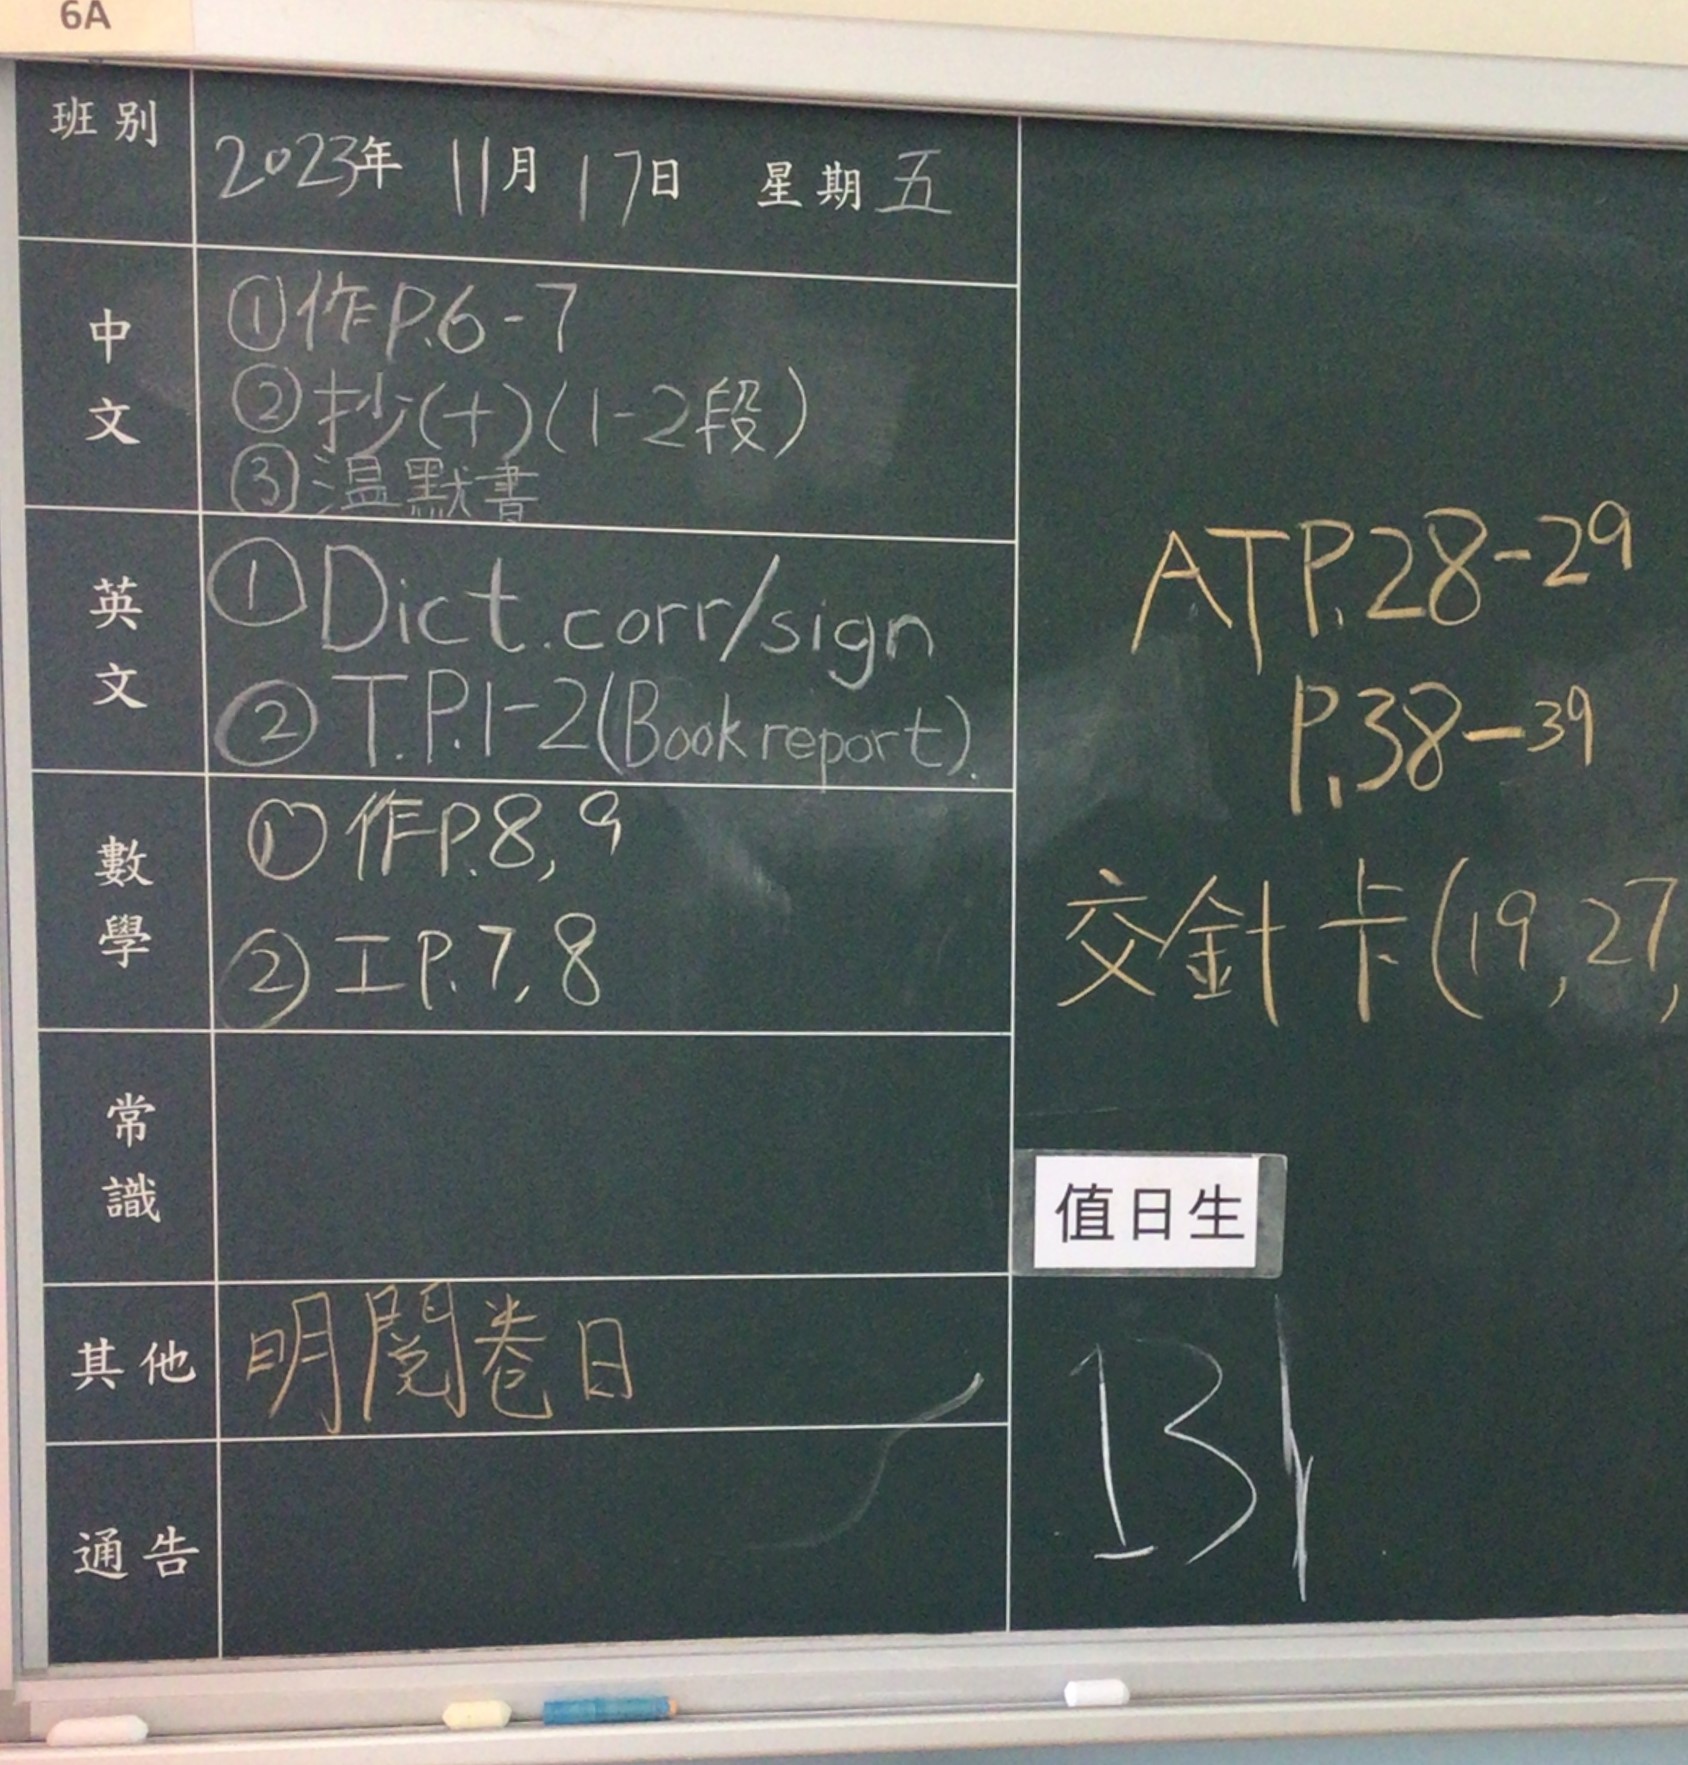 6A
班別
2023年 11月 17日 星期五
中文
①作P.6-7
②抄(十)(1-2段)
③溫默書
英文
①Dict.corr/sign
②T.P.1-2(Book report).
數學
①作P.8,9
②工P.7,8
常識
其他
明閱卷日
通告
ATP.28-29
P.38-39
交針卡(19,27,
值日生